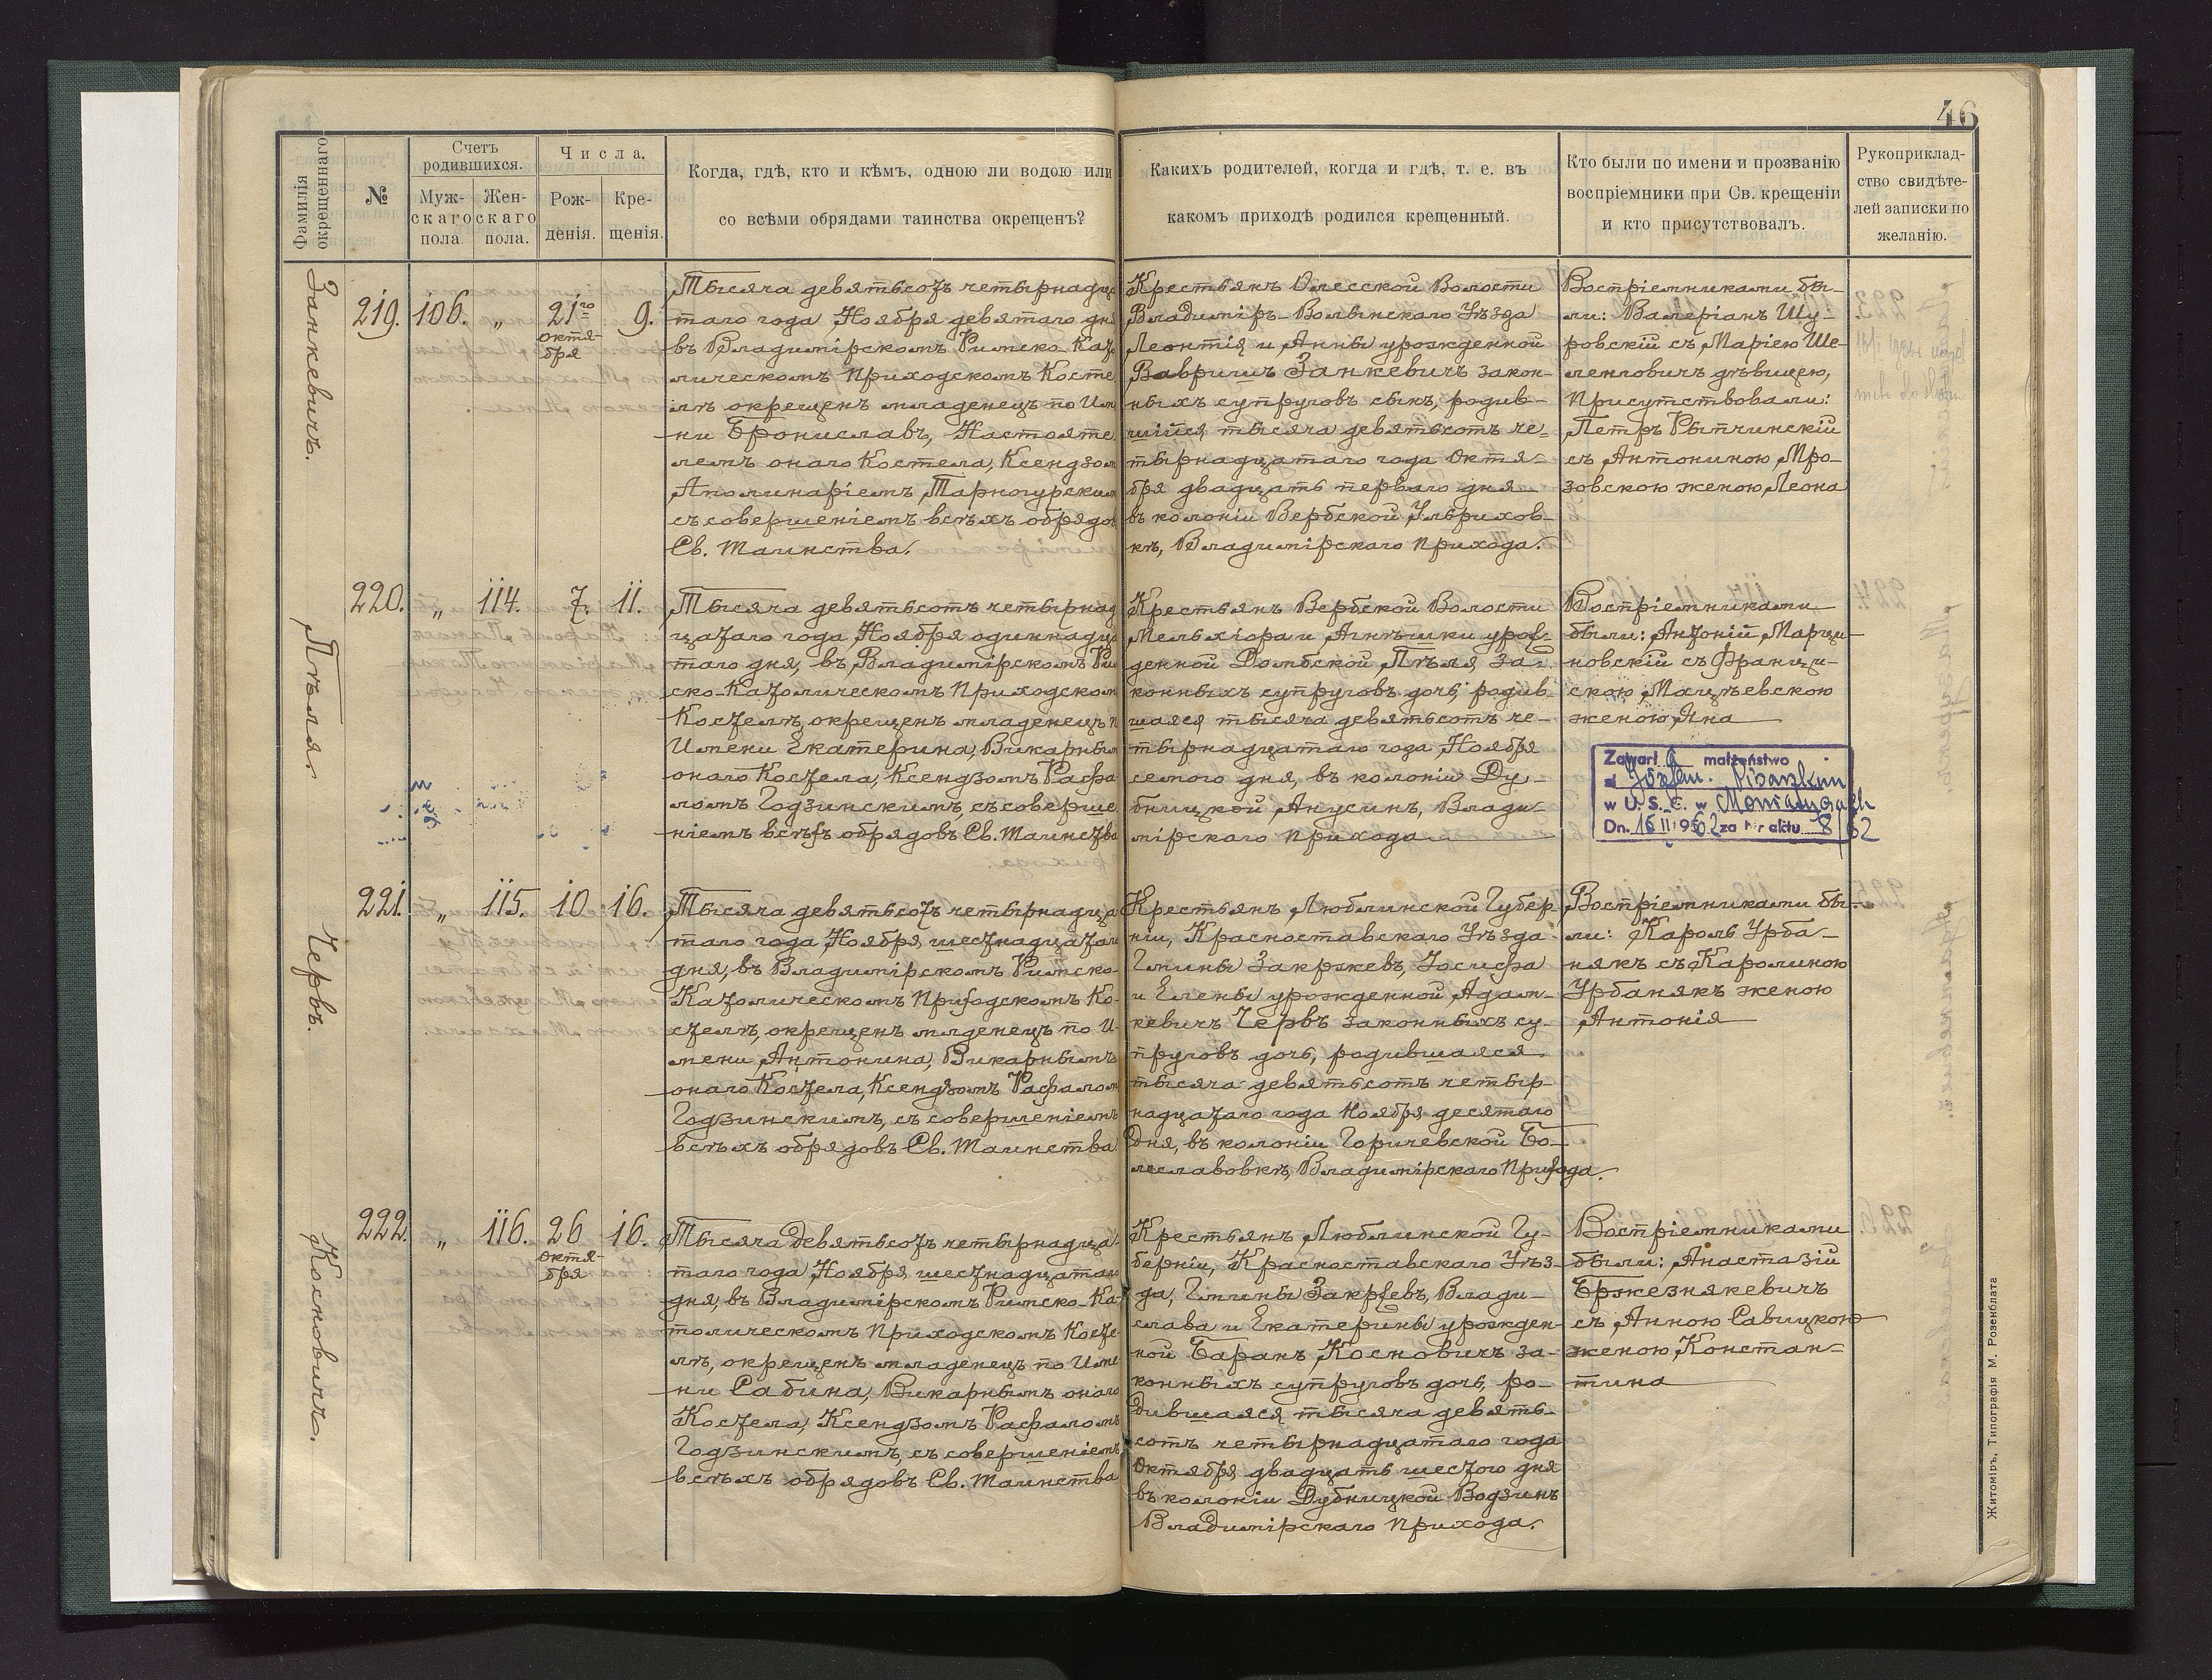 46
Фамилія окрещеннаго
№
Счетъ родившихся.
Муж-
скаго
пола.
Жен-
скаго
пола.
Числа.
Рож-
денія.
Кре-
щенія.
Когда, гдѣ, кто и кѣмъ, одною ли водою или
со всѣми обрядами таинства окрещенъ?
Каких родителей, когда и гдѣ, т. е. въ
какомъ приходѣ родился крещенный.
Кто были по имени и прозванію
воспріемники при Св. крещеніи
и кто присутствовалъ.
Рукоприклад-
ство свидѣте-
лей записки по
желанію.
Занкевичъ.
219. 106. „ 21го октя-
бря 9.
Тысяча девятьсотъ четырнадца
таго года Ноября девятаго дня
въ Владимірскомъ Римско-Като
лическомъ Приходскомъ Косте
лѣ окрещенъ младенецъ по Име
ни Брониславъ, Настояте
лемъ онаго Костела, Ксендзом
Аполинаріемъ Тарногурским
съ совершеніемъ всѣхъ обрядов
Св. Таинства.
Крестьянъ Олесской Волости
Владиміръ-Волынскаго Уѣзда
Леонтія и Анны урожденной
Вавришъ Занкевичъ закон-
ныхъ супруговъ сынъ, родив-
шійся тысяча девятьсотъ че-
тырнадцатаго года Октя-
бря двадцать перваго дня
въ колоніи Вербской Ульрихов-
кѣ, Владимірскаго прихода.
Воспріемниками бы-
ли: Валеріанъ Щу-
ровскій съ Маріею Ше-
ленговичъ дѣвицею,
Присутствовали:
Петръ Рыпчинскій
съ Антониною Мро-
зовскою женою Леона
Пѣляя
220. „ 114. 7. 11.
Тысяча девятьсотъ четырнад
цатаго года Ноября одиннадца
таго дня, въ Владимірскомъ Рим
ско-Католическомъ Приходском
Костелѣ, окрещенъ младенецъ п
Имени Екатерина, Викарным
онаго Костела, Ксендзомъ Рафа
ломъ Годзинскимъ, съ соверше
ніемъ всѣхъ обрядовъ Св. Таинства
Крестьянъ Вербской Волости
Мельхіора и Агнѣшки урож-
денной Домбской Пѣляя за-
конныхъ супруговъ дочь, родив
шаяся тысяча девятьсотъ че-
тырнадцатаго года Ноября
седмого дня, въ колоніи Ду-
бницкой Анусинъ, Влади-
мірскаго прихода
Воспріемниками
были: Антоній Марци-
новскій съ Франци-
скою Мацѣевскою
женою Яна
Zawarł a małżeństwo
z Józefem Pisarzkim
w U. S. C. w
Dn. 16 II 1962 za Nr aktu 8/62
Червъ.
221. „ 115. 10 16.
Тысяча девятьсотъ четырнадца
таго года Ноября шестнадцатаго
дня, въ Владимірскомъ Римско-
Католическомъ Приходскомъ Ко-
стелѣ, окрещенъ мляденецъ по И-
мени Антонина, Викарнымъ
онаго Костела, Ксендзомъ Рафалом
Годзинскимъ, съ совершеніемъ
всѣхъ обрядовъ Св. Таинства
Крестьянъ Люблинской Губер-
ніи, Красноставскаго Уѣзда
Гмины Закржевъ, Іосифа
и Елены урожденной Адам-
кевичъ Червъ законныхъ су-
пруговъ дочь, родившаяся
тысяча девятьсотъ четыр-
надцатаго года Ноября десятаго
дня, въ колоніи Горичевской Бо-
леславовкѣ, Владимірскаго Прихода.
Воспріемниками бы-
ли: Кароль Урба-
някъ съ Каролиною
Урбанякъ женою
Антонія
Косновичъ.
222. „ 116. 26 октя-
бря 16.
Тысяча девятьсотъ четырнадца-
таго года Ноября шестнадцатаго
дня, въ Владимірскомъ Римско-Ка-
толическомъ Приходскомъ Косте-
лѣ, окрещенъ младенецъ по Име
ни Сабина, Викарнымъ онаго
Костела, Ксендзомъ Рафаломъ
Годзинскимъ, съ совершеніемъ
всѣхъ обрядовъ Св. Таинства
Крестьянъ Люблинской Гу-
берніи, Красноставскаго Уѣз-
да, Гмины Закржевъ, Влади-
слава и Екатерины урожден-
ной Баранъ Косновичъ за-
конныхъ супруговъ дочь, ро-
дившаяся тысяча девять-
сотъ четырнадцатаго года
Октября двадцать шестого дня
въ колоніи Дубницкой Водзинъ
Владимірскаго прихода.
Воспріемниками
были: Анастазій
Бржезнякевичъ
съ Анною Савицкою
женою Констан-
тина
Житоміръ, Типографія М. Розенблата